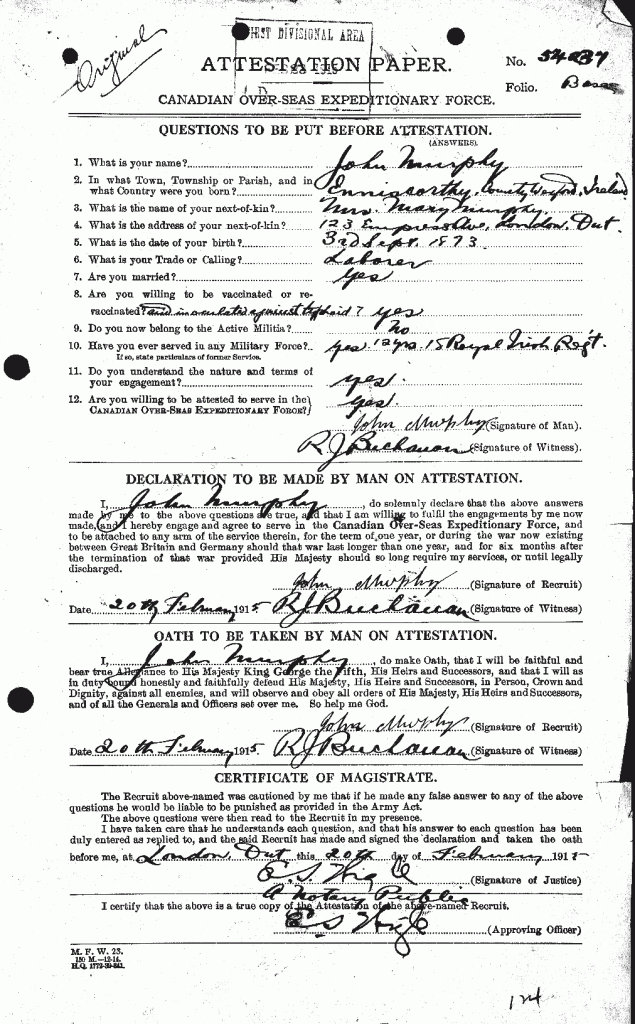 Original
FIRST DIVISIONAL AREA
ATTESTATION PAPER.
No.
Folio.
CANADIAN OVER-SEAS EXPEDITIONARY FORCE.
QUESTIONS TO BE PUT BEFORE ATTESTATION.
(ANSWERS).
1. What is your name? John Murphy
2. In what Town, Township or Parish, and in
what Country were you born? Enniscorthy, County Wexford, Ireland
3. What is the name of your next-of-kin? Mrs. Mary Murphy.
4. What is the address of your next-of-kin? 123 Empress Ave, London, Ont.
5. What is the date of your birth? 3rd Sept. 1873.
6. What is your Trade or Calling? Laborer
7. Are you married? yes
8. Are you willing to be vaccinated or re-
vaccinated? and inoculated against typhoid? yes
9. Do you now belong to the Active Militia? No
10. Have you ever served in any Military Force? yes. 12 yrs. 18 Royal Irish Regt.
If so, state particulars of former Service.
11. Do you understand the nature and terms of
your engagement? yes.
12. Are you willing to be attested to serve in the
CANADIAN OVER-SEAS EXPEDITIONARY FORCE? yes.
John Murphy (Signature of Man).
R J Buchanan (Signature of Witness).
DECLARATION TO BE MADE BY MAN ON ATTESTATION.
I, John Murphy, do solemnly declare that the above answers
made by me to the above questions are true, and that I am willing to fulfil the engagements by me now
made, and I hereby engage and agree to serve in the Canadian Over-Seas Expeditionary Force, and
to be attached to any arm of the service therein, for the term of one year, or during the war now existing
between Great Britain and Germany should that war last longer than one year, and for six months after
the termination of that war provided His Majesty should so long require my services, or until legally
discharged.
John Murphy (Signature of Recruit)
Date 20th February 1915 R J Buchanan (Signature of Witness)
OATH TO BE TAKEN BY MAN ON ATTESTATION.
I, John Murphy, do make Oath, that I will be faithful and
bear true Allegiance to His Majesty King George the Fifth, His Heirs and Successors, and that I will as
in duty bound honestly and faithfully defend His Majesty, His Heirs and Successors, in Person, Crown and
Dignity, against all enemies, and will observe and obey all orders of His Majesty, His Heirs and Successors,
and of all the Generals and Officers set over me. So help me God.
John Murphy (Signature of Recruit)
Date 20th February 1915 R J Buchanan (Signature of Witness)
CERTIFICATE OF MAGISTRATE.
The Recruit above-named was cautioned by me that if he made any false answer to any of the above
questions he would be liable to be punished as provided in the Army Act.
The above questions were then read to the Recruit in my presence.
I have taken care that he understands each question, and that his answer to each question has been
duly entered as replied to, and the said Recruit has made and signed the declaration and taken the oath
before me, at London, Ont this 20th day of February 1915
(Signature of Justice)
A Notary Public
I certify that the above is a true copy of the Attestation of the above-named Recruit.
(Approving Officer)
M. F. W. 23.
150 M.—12-14.
H.Q. 1772-39-841.
124